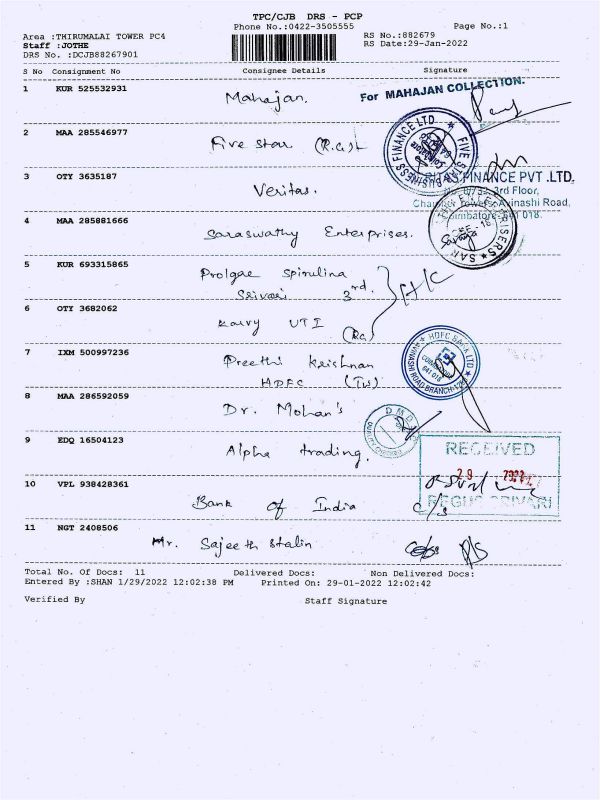 TPC/CJB DRS - PCP
Phone No.:0422-3505555
Page No.:1
Area :THIRUMALAI TOWER PC4
RS No.:882679
Staff :JOTHE
RS Date:29-Jan-2022
DRS No. :DCJB88267901
S No Consignment No Consignee Details Signature
1 KUR 525532931 Mahajan.
For MAHAJAN COLLECTION.
2 MAA 285546977 Five Star (R.G)
FIVE STAR BUSINESS FINANCE LTD
3 OTY 3635187 Veritas.
FINANCE PVT .LTD.
3rd Floor,
Avinashi Road,
Coimbatore-641 018.
4 MAA 285881666 Saraswathy Enterprises.
5 KUR 693315865 Prolgae Spirulina
Srivari 3rd.
6 OTY 3682062 Karvy UTI (RG)
7 IXM 500997236 Preethi Krishnan
HDFC (TW)
HDFC BANK LTD
AVINASHI ROAD BRANCH
COIMBATORE
641 018
8 MAA 286592059 Dr. Mohan's
9 EDQ 16504123 Alpha trading.
RECEIVED
REGUS SRIVARI
10 VPL 938428361 Bank of India c/s
11 NGT 2408506 Mr. Sajeeth Stalin
Total No. Of Docs: 11 Delivered Docs: Non Delivered Docs:
Entered By :SHAN 1/29/2022 12:02:38 PM Printed On: 29-01-2022 12:02:42
Verified By Staff Signature